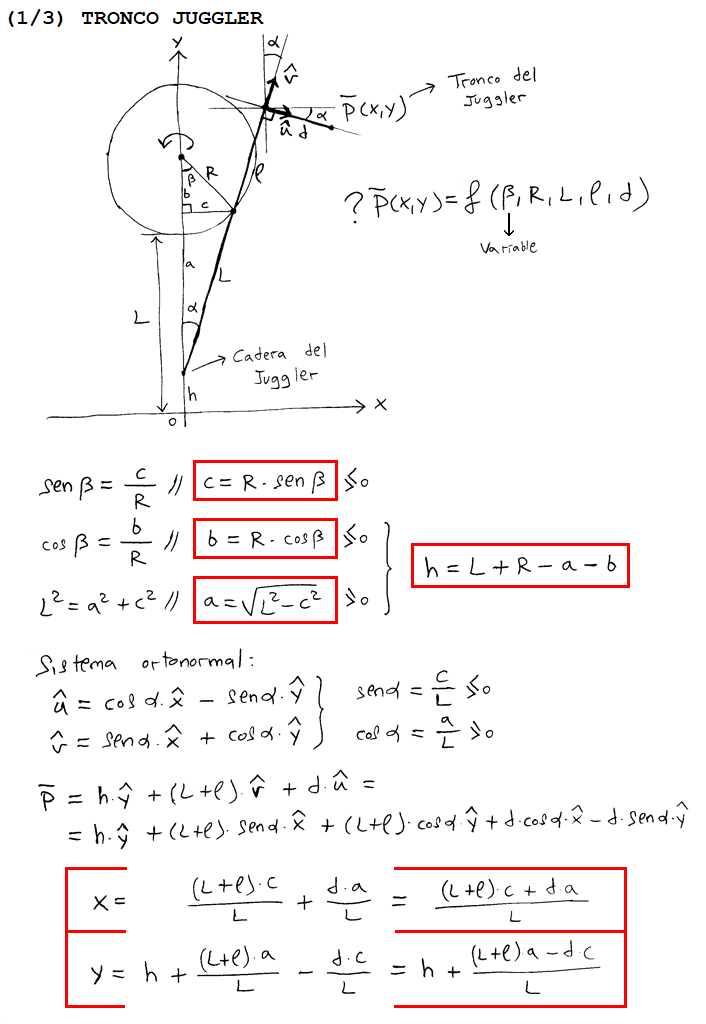 (1/3) TRONCO JUGGLER
Y
α
v̂
P̄(X,Y) → Tronco del Juggler
α
û d
R
β
b
l
c
? P̄(X,Y) = f (β, R, L, l, d)
↓
Variable
a
L
L
α
→ Cadera del
Juggler
h
X
0
sen β = c/R // c = R · sen β ⋚ 0
cos β = b/R // b = R · cos β ⋚ 0
h = L + R − a − b
L² = a² + c² // a = √(L² − c²) ⩾ 0
Sistema ortonormal:
û = cos α · x̂ − sen α · ŷ } sen α = c/L ⋚ 0
v̂ = sen α · x̂ + cos α · ŷ } cos α = a/L ⩾ 0
P̄ = h · ŷ + (L+l) · v̂ + d · û =
= h · ŷ + (L+l) · sen α · x̂ + (L+l) · cos α · ŷ + d · cos α · x̂ − d · sen α · ŷ
X = (L+l) · c / L + d · a / L = (L+l) · c + d · a / L
Y = h + (L+l) · a / L − d · c / L = h + (L+l) a − d · c / L